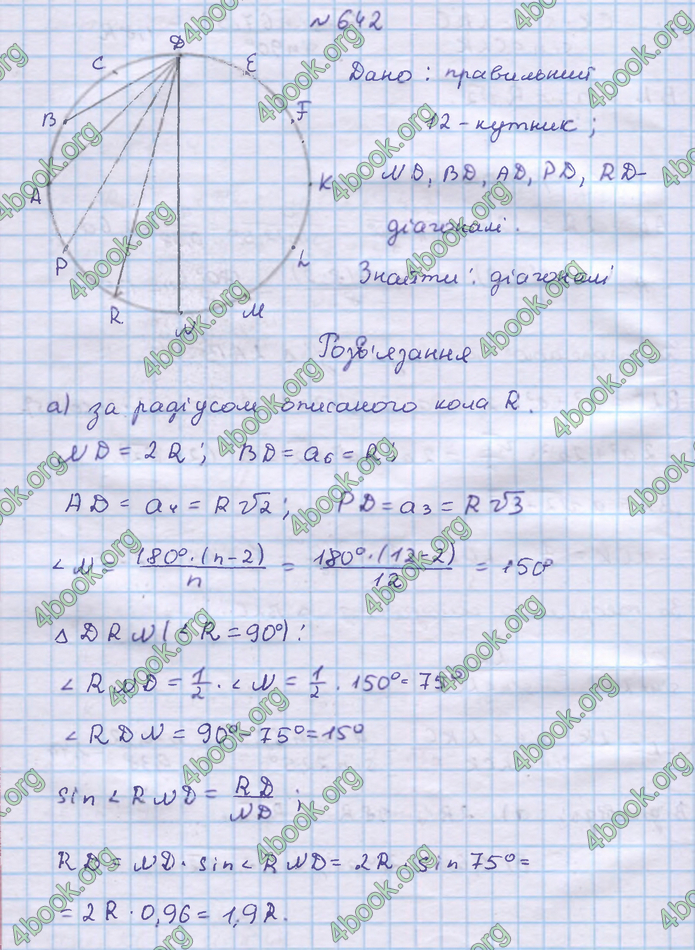 № 642
D
C
E
B
F
A
K
P
L
R
N
M
Дано: правильний
12-кутник;
ND, BD, AD, PD, RD-
діагоналі.
Знайти: діагоналі
Розв'язання
а) за радіусом описаного кола R.
ND = 2R; BD = a₆ = R;
AD = a₄ = R√2; PD = a₃ = R√3
∠N = 180°·(n-2)/n = 180°·(12-2)/12 = 150°
△DRN (∠R = 90°):
∠RND = 1/2 · ∠N = 1/2 · 150° = 75°
∠RDN = 90° - 75° = 15°
sin∠RND = RD/ND;
RD = ND · sin∠RND = 2R · sin 75° =
= 2R · 0,96 = 1,9R.
4book.org